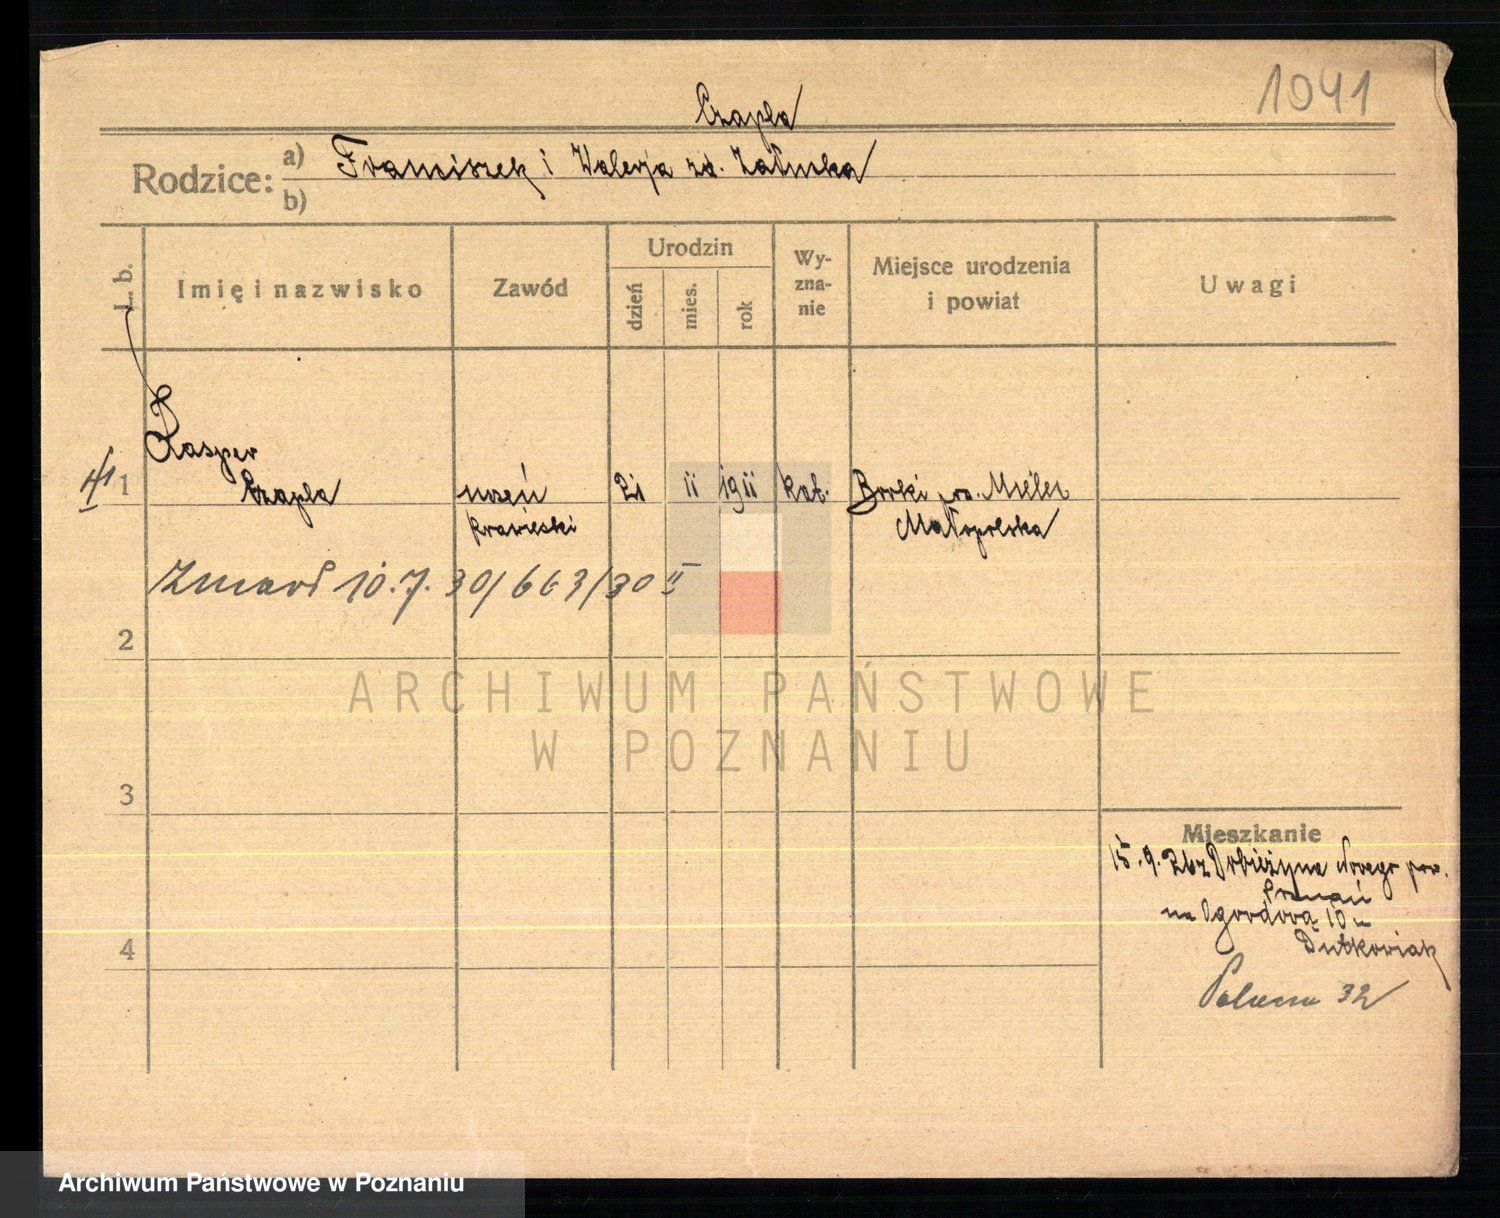 1041
Czapla
Rodzice:
a) Franciszek i Walerja zd. Załucka
b)
L. b.
Imię i nazwisko
Zawód
Urodzin
dzień
mies.
rok
Wy-
zna-
nie
Miejsce urodzenia
i powiat
Uwagi
Kasper
1 Czapla uczeń 21 II 1911 kat. Borki po. Mielec
krawiecki Małopolska
Zmarł 10.7.30/663/30 II
2
ARCHIWUM PAŃSTWOWE
W POZNANIU
3
Mieszkanie
15.9.26 z Dobieżyna Nowego pow.
Poznań
na Ogrodową 10 u
Dutkowiak
32
4
Archiwum Państwowe w Poznaniu